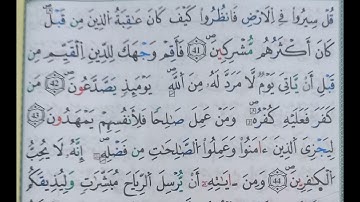 قُلْ سِيرُوا۟ فِي اِ۬لَارْضِ فَانظُرُوا۟ كَيْفَ كَانَ عَٰقِبَةُ اُ۬لذِينَ مِن قَبْلُۖ
كَانَ أَكْثَرُهُم مُّشْرِكِينَۖ 41 فَأَقِمْ وَجْهَكَ لِلدِّينِ اِ۬لْقَيِّمِ مِن
قَبْلِ أَنْ يَّاتِيَ يَوْمٌ لَّا مَرَدَّ لَهُۥ مِنَ اَ۬للَّهِۖ يَوْمَئِذٍ يَصَّدَّعُونَۖ 42 مَن
كَفَرَ فَعَلَيْهِ كُفْرُهُۥۖ وَمَنْ عَمِلَ صَٰلِحاً فَلِأَنفُسِهِمْ يَمْهَدُونَ 43
لِيَجْزِيَ اَ۬لذِينَ ءَامَنُوا۟ وَعَمِلُوا۟ اُ۬لصَّٰلِحَٰتِ مِن فَضْلِهِۦٓۖ إِنَّهُۥ لَا يُحِبُّ
اُ۬لْكٰ۪فِرِينَۖ 44 وَمِنَ ـ ايَٰتِهِۦٓ أَنْ يُّرْسِلَ اَ۬لرِّيَاحَ مُبَشِّرَٰتٍ وَلِيُذِيقَكُم